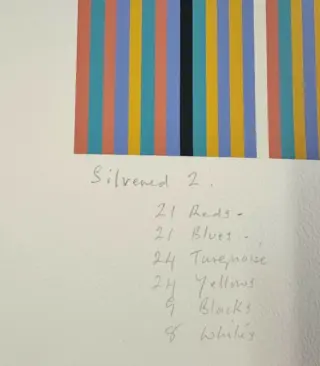 Silvered 2.
21 Reds.
21 Blues.
24 Turquoise
24 Yellows
9 Blacks
8 Whites